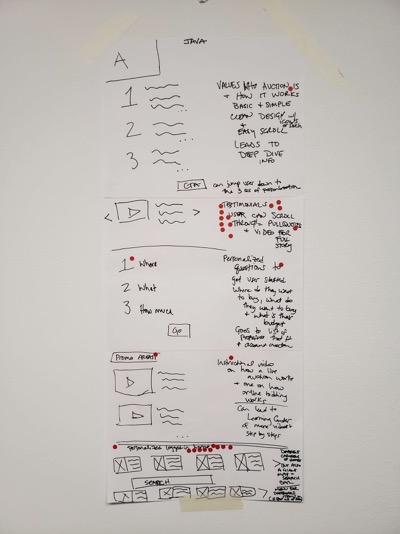 JAVA
A
1
2
3
VALUES AUCTION IS
+ HOW IT WORKS
BASIC + SIMPLE
CLEAN DESIGN
+
EASY SCROLL
LEADS TO
DEEP DIVE
INFO
CTA
can jump user down to
the 3 of personalization
TESTIMONIALS
USER CAN SCROLL
THROUGH PULLQUOTES
+ VIDEO FOR
FULL
STORY
1 Where
2 What
3 How much
GO
Personalized
questions to
get user started
Where do they want
to buy, what do
they want to buy
+ what is their
budget
Goes to list of
properties that fit
+ auction
PROMO AREAS?
Instructional video
on how a live
auction works
+ one on how
online bidding
works
Can lead to
Learning Center
of more videos
step by steps
personalized logged in
SEARCH